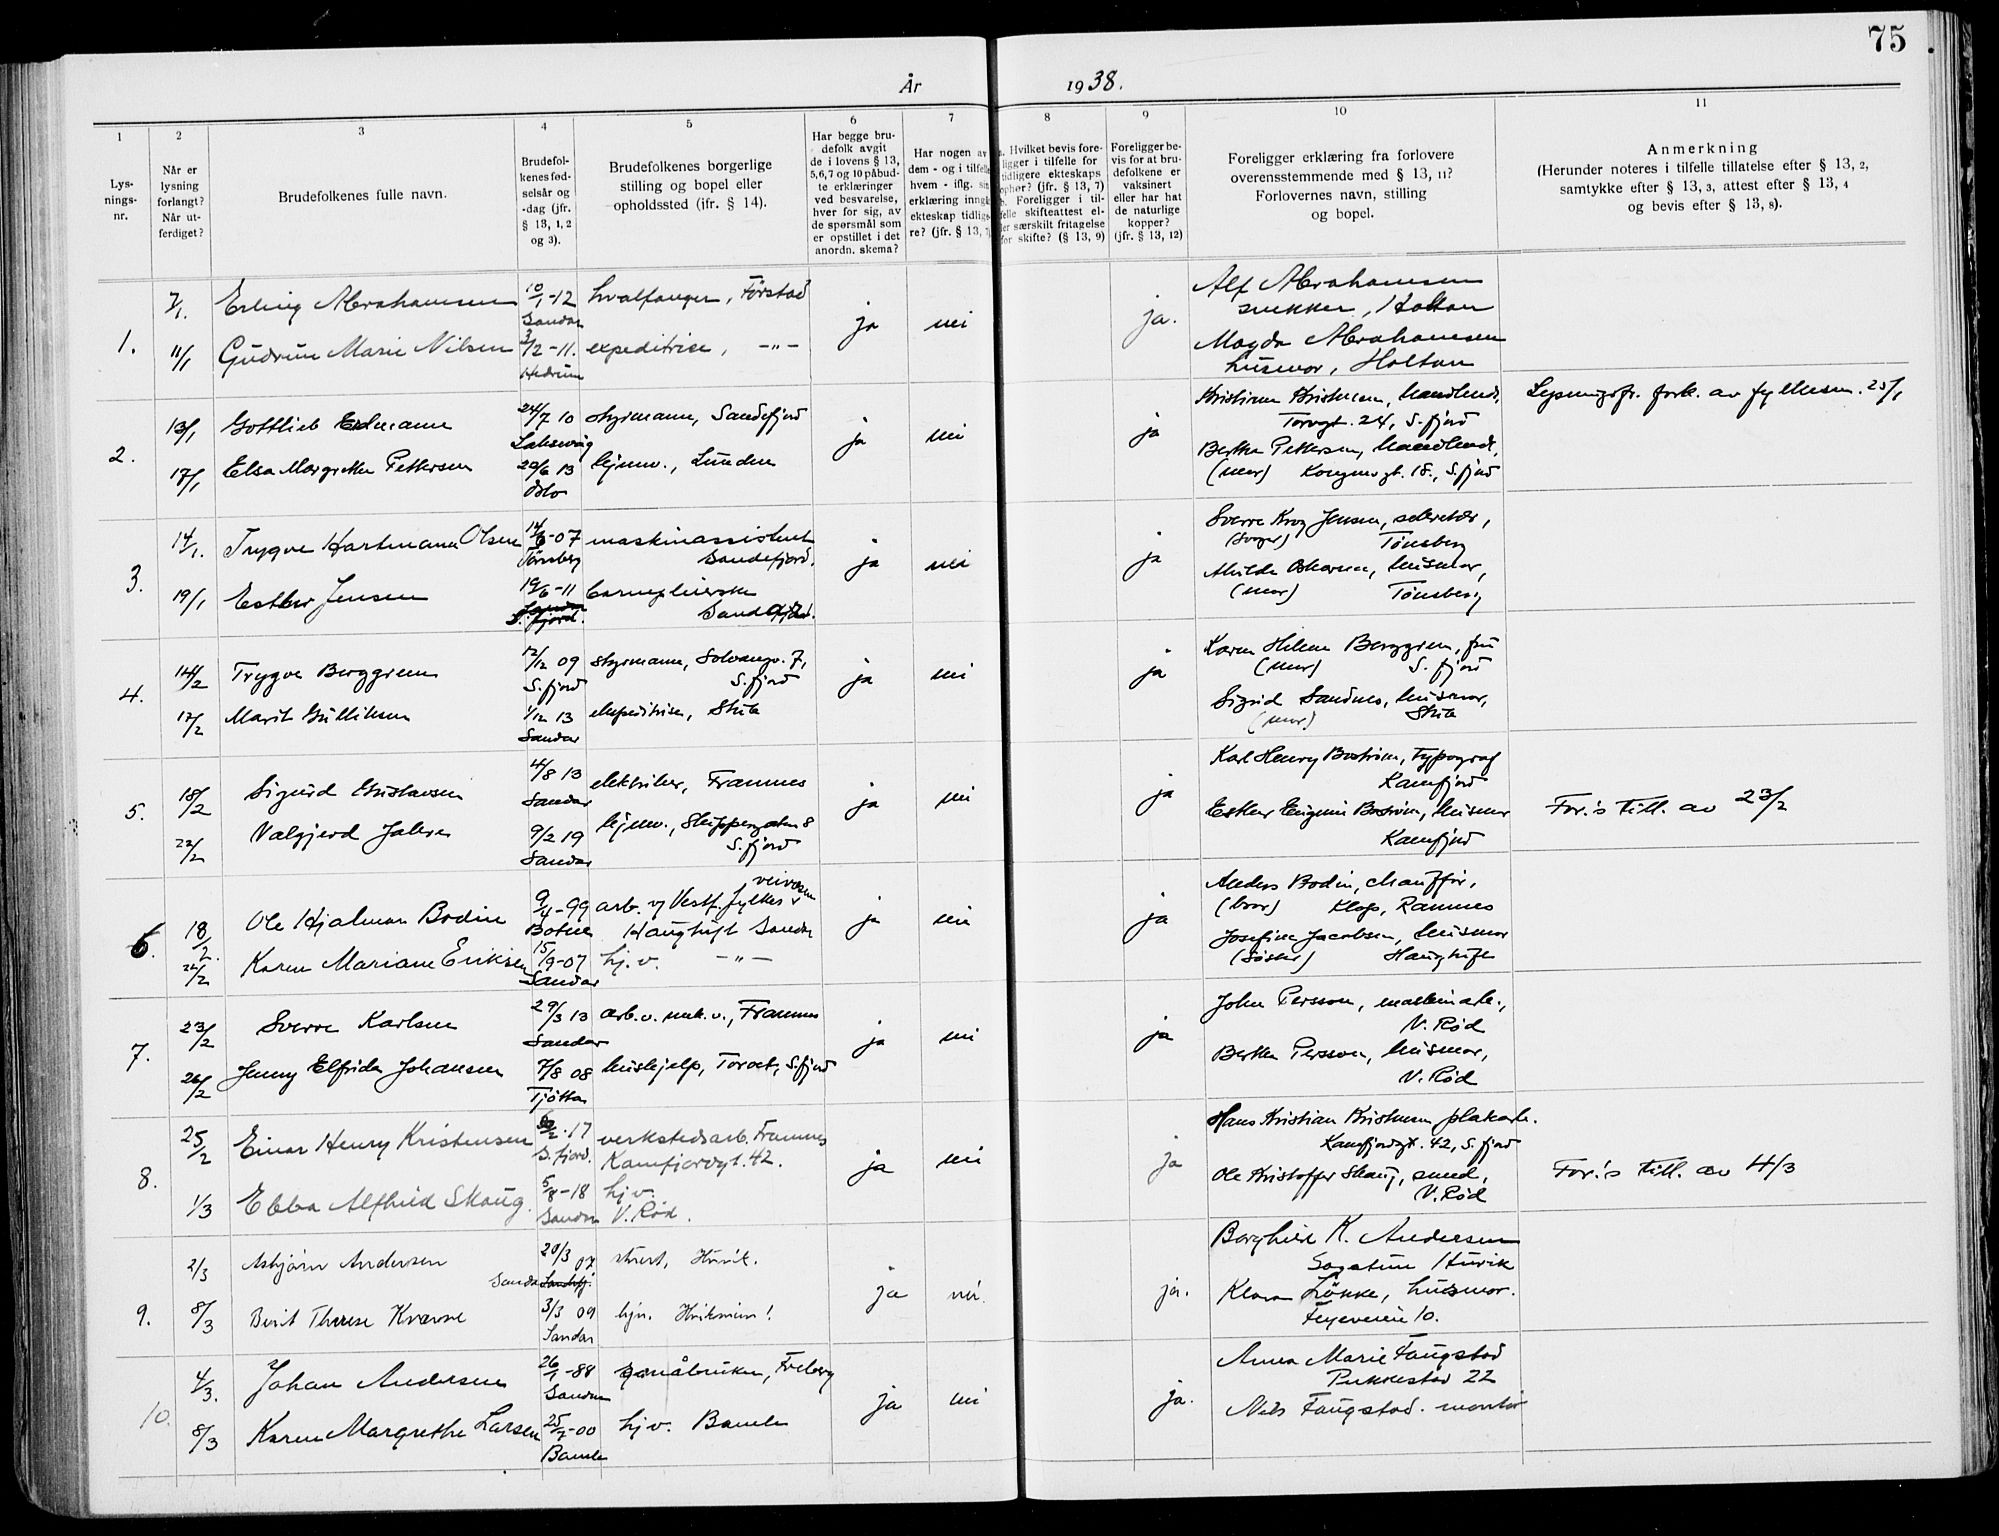 75
År 1938.
1
2
3
4
5
6
7
8
9
10
11
Lys-
nings-
nr.
Når er
lysning
forlangt?
Når ut-
ferdiget?
Brudefolkenes fulle navn.
Brudefol-
kenes fød-
selsår og
-dag (jfr.
§ 13, 1, 2
og 3).
Brudefolkenes borgerlige
stilling og bopel eller
opholdssted (jfr. § 14).
Har begge bru-
defolk avgit
de i lovens § 13,
5,6,7 og 10 påbud-
te erklæringer
ved besvarelse,
hver for sig, av
de spørsmål som
er opstillet i det
anordn. skema?
Har nogen av
dem - og i tilfelle
hvem - iflg. sin
erklæring inngå
ekteskap tidlige-
re? (jfr. § 13,
Hvilket bevis fore-
ligger i tilfelle for
tidligere ekteskaps
ophør? (jfr. § 13, 7)
b. Foreligger i til-
felle skifteattest el-
ler særskilt fritagelse
for skifte? (§ 13, 9)
Foreligger be-
vis for at bru-
defolkene er
vaksinert
eller har hat
de naturlige
kopper?
(jfr. § 13, 12)
Foreligger erklæring fra forlovere
overensstemmende med § 13, 11?
Forlovernes navn, stilling
og bopel.
Anmerkning
(Herunder noteres i tilfelle tillatelse efter § 13, 2,
samtykke efter § 13, 3, attest efter § 13, 4
og bevis efter § 13, 8).
1.
7/1. Erling Abrahamsen 10/1-12 hvalfanger, Förstad
Sandar
11/1 Gudrun Marie Nilsen 3/2-11. expeditrise, -"-
Hedrum
ja nei ja.
Alf Abrahamsen
snekker, Holtan
Magda Abrahamsen
husmor, Holtan
2.
13/1 Gottlieb Erdmann 24/7 10 styrmann, Sandefjord
Laksevåg
17/1 Elsa Margrethe Pettersen 20/6 13 hjemv., Lunden
Oslo
ja nei ja
Kristian Kristensen, handlende,
Torvgt. 24, S.fjord
Bertha Pettersen, handlende,
(mor) Kongensgt. 18., S.fjord
Lysningsfr. fork. av fylkesm. 25/1
3.
14/1. Trygve Hartmann Olsen 14/6-07 maskinassistent
Tönsberg Sandefjord.
19/1 Esther Jensen 19/6-11 barnepleierske
S. fjord. Sandefjord.
ja nei ja
Sverre Krog Jensen, sekretær,
(svoger) Tønsberg
(mor) Tønsberg
4.
14/2 Trygve Berggren 12/12 09 styrmann, Solvangv. 7,
S.fjord S.fjord
17/2 Marit Gulliksen 1/12 13 ekspeditrise, Skiba
Sandar
ja nei ja
Karen Helene Berggren, fru
(mor) S. fjord
Sigrid Sandnes, husmor,
(mor)
5.
18/2 Sigurd Gustavsen 4/8 13 elektriker, Framnes
Sandar
22/2 Valgjerd Jahren 9/2 19 hjemv., Skippergaten 8
Sandar S.fjord
ja nei ja
Karl Henry Boström, typograf
Kamfjord
Esther Eugenie Boström, husmor
Kamfjord
For.'s till. av 23/2
6.
18/2. Ole Hjalmar Bodin 9/4-99 arb. v/ Vestf. fylkes veivesen
Botne Haugtuft Sandar
22/2 Karen Mariane Eriksen 15/9-07 hj.v. -"-
Sandar
ja nei ja
Anders Bodin, chauffør,
(bror) Klop, Ramnes
Josefine Jacobsen, husmor
(søster) Haugtuft
7.
23/2 Sverre Karlsen 29/3 13 arb. v. mek. v., Framnes
Sandar
26/2 Jenny Elfrida Johansen 7/8 08 hushjelp, Torvet, S.fjord
Tjötta
ja nei ja
John Persson, maskinarb.,
V. Rød
Berthe Persson, husmor,
V. Rød
8.
25/2 Einar Henry Kristensen /2-17 verkstedsarb. Framnes
S. fjord. Kamfjordgt. 42.
1/3 Ebba Alfhild Skaug. 5/8-18 hj.v.
Sandar V. Rød.
ja nei ja
Hans Kristian Kristensen plakarb.
Kamfjordgt. 42, S. fjord
Ole Kristoffer Skaug, smed,
V. Rød
For.'s till. av 4/3
9.
2/3 Asbjörn Andersen 20/3 07 stuert, Hvirik.
Sandar
8/3 Berit Therese Kværne 3/3 09 hjv.
Sandar
ja nei. ja.
Borghild K. Andersen
Sogatun Huvik
Klara Løkke, husmor.
10.
10.
4/3. Johan Andersen 26/1-88 småbruker, Freberg
Sandar
8/3 Karen Margrethe Larsen 25/7-00 hj.v. Bamle
Bamle
ja nei ja.
Anna Marie Faugstad
Pukkestad 22
Nils Faugstad. montør